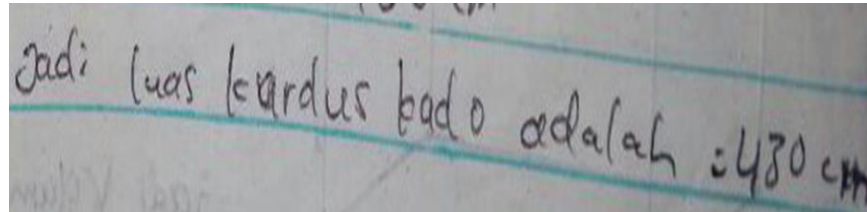 Jadi luas kardus kado adalah = 480 cm